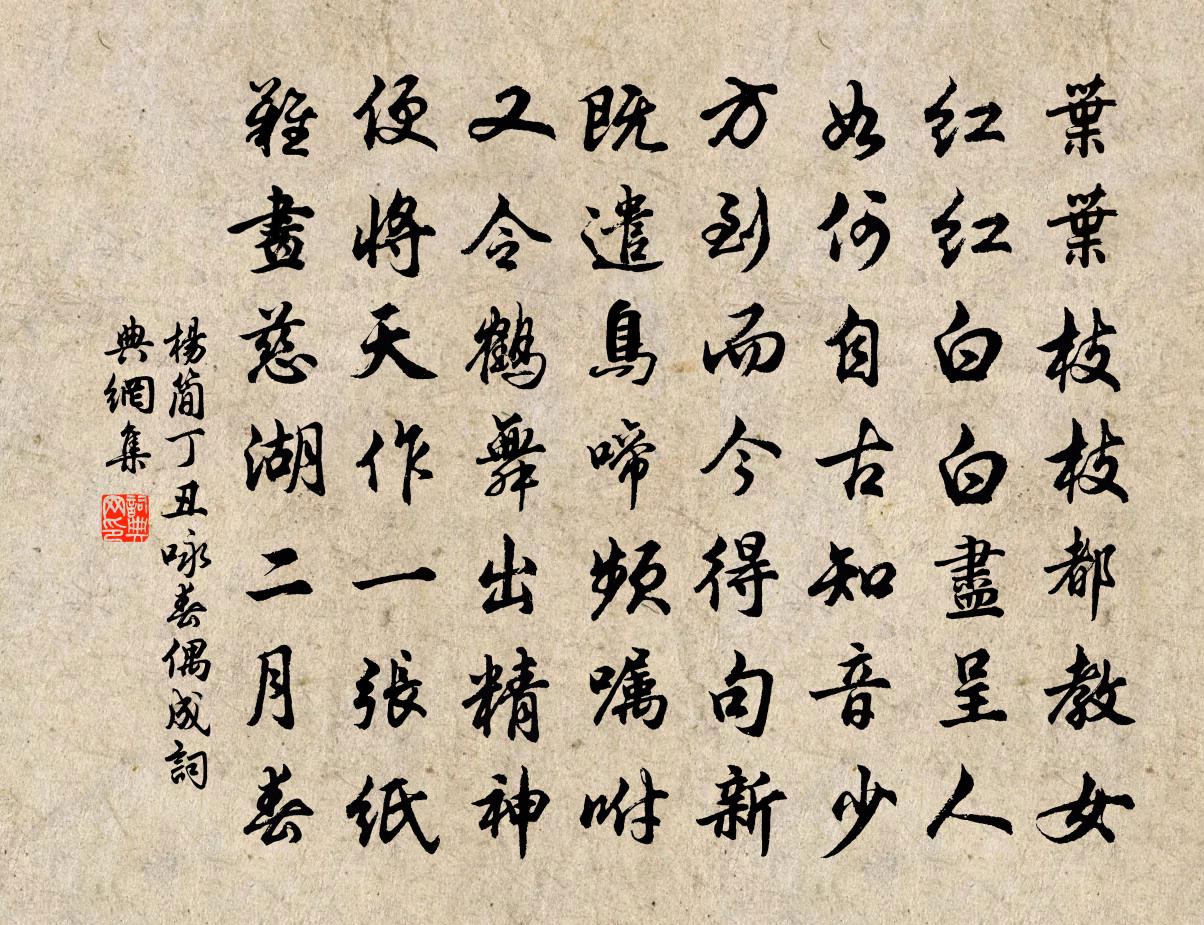 葉葉枝枝都教女
紅紅白白盡呈人
如何自古知音少
方到而今得句新
既遣鳥啼頻嘱咐
又令鶴舞出精神
便將天作一張紙
難畫慈湖二月春
楊简丁丑咏春偶成詞
典網集
詞典
网印